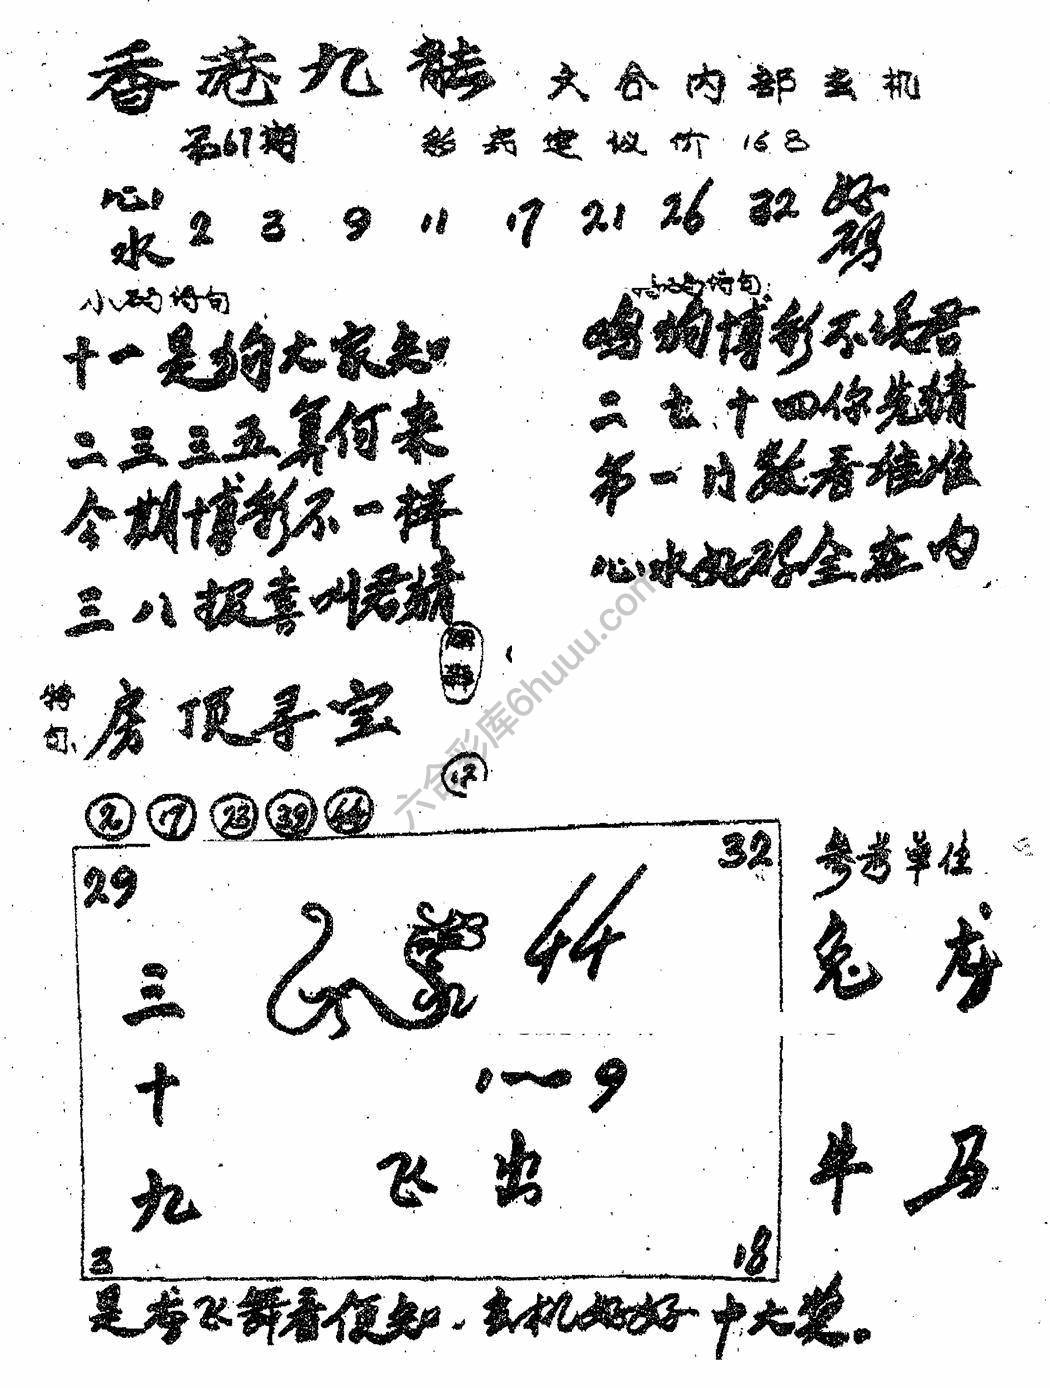 香港九龙 六合内部玄机
第67期 彩商建议价168
心水 2 3 9 11 17 21 26 32 好码
小码诗句
十一是狗大家知
二三三五算何来
今期博彩不一样
三八报喜叫君猜
鸣狗博彩不误君
二七十四你先猜
第一片数看准准
心水好码全在内
特句 房顶寻宝
12
26 17 23 39 44
29 32
三十九
44
1一9
飞出
3 18
参考单位
兔 龙
牛 马
是考飞舞看便知.玄机好好中大奖。
六合彩库6huuu.com